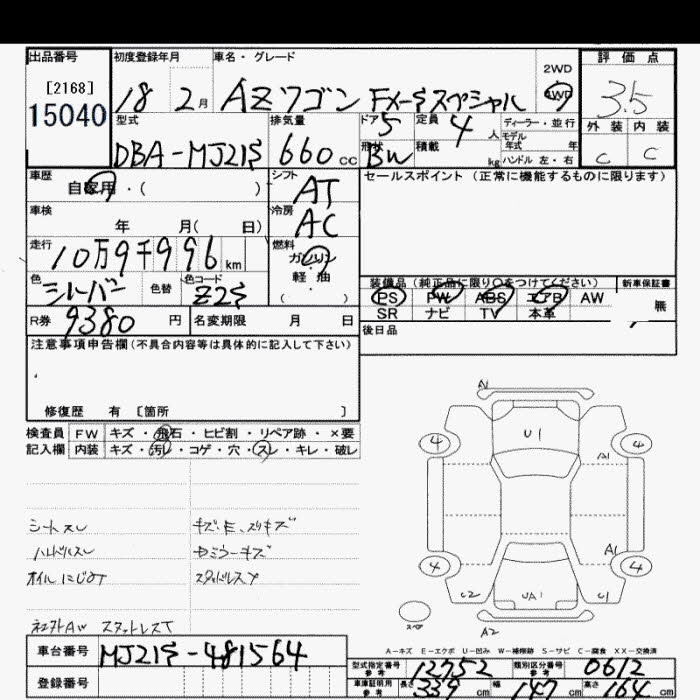 出品番号 初度登録年月 車名・グレード 評価点
[2168] 2WD
15040 18 2月 AZワゴン FX-Sスペシャル 4WD 3.5
型式 排気量 ドア 5 定員 4人 ディーラー・並行 外装 内装
DBA-MJ21S 660cc 形状 BW 積載 kg モデル年式 年 C C
ハンドル 左・右
車歴 自家用・( ) シフト AT セールスポイント(正常に機能するものに限ります)
車検 年 月( 日) 冷房 AC
走行 10万9千996km 燃料 ガソリン
軽・油
( )
色 シルーバー 色替 色コード Z2S
装備品(純正品に限り○をつけてください) 新車保証書
PS PW ABS エアB AW 無
SR ナビ TV 本革
R券 9380円 名変期限 月 日 後日品
注意事項申告欄(不具合内容等は具体的に記入して下さい)
修復歴 有 [箇所 ]
検査員 FW キズ・飛石・ヒビ割・リペア跡・×要
記入欄 内装 キズ・汚レ・コゲ・穴・スレ・キレ・破レ
A1
U1
4 4
A1
A1
4 4
C2 UA1 C1
スペア A2
シートスレ
ハンドルスレ
オイルにじみ
スタッドレスT
A-キズ E-エクボ U-凹み W-補修跡 S-サビ C-腐食 XX-交換済
車台番号 MJ21S-481564
登録番号
型式指定番号 参考 12752 類別区分番号 参考 0612
車庫証明用 参考 長さ 339cm 幅 147cm 高さ 164cm